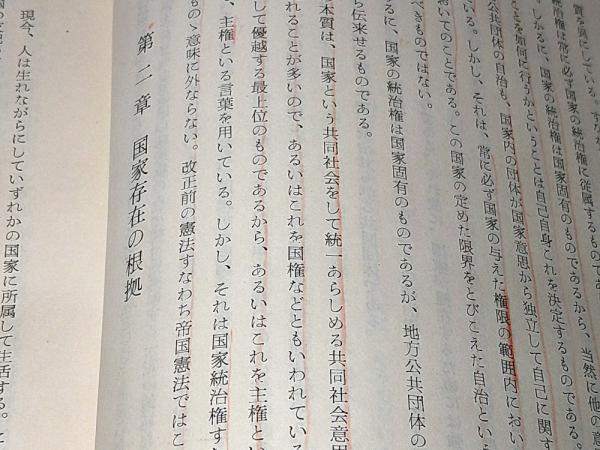 質を異にしている。すなわ
統治権は常に必ず国家の統治権に従属するものであ
る。しかるに、国家の統治権は国家固有のものであるから、当然に他の意
ことを如何に行うかということは自己自身これを決定するものである。
公共団体の自治も、国家内の団体が国家意思から独立して自己に関す
る。しかし、それは、常に必ず国家の与えた権限の範囲内におい
おいてのことである。この国家の定めた限界をとびこえた自治とい
べきものではない。
るに、国家の統治権は国家固有のものであるが、地方公共団体の
ら伝来せるものである。
本質は、国家という共同社会をして統一あらしめる共同社会意思
れることが多いので、あるいはこれを国権などともいわれている
して優越する最上位のものであるから、あるいはこれを主権とい
、主権といる言葉を用いている。しかし、それは国家統治権す
もの、意味に外ならない。改正前の憲法すなわち帝国憲法ではこ
第二章 国家存在の根拠
現今、人は生れながらにしていずれかの国家に所属して生活する。